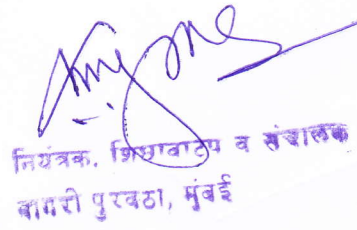 नियंत्रक, शिधावाटप व संचालक
नागरी पुरवठा, मुंबई